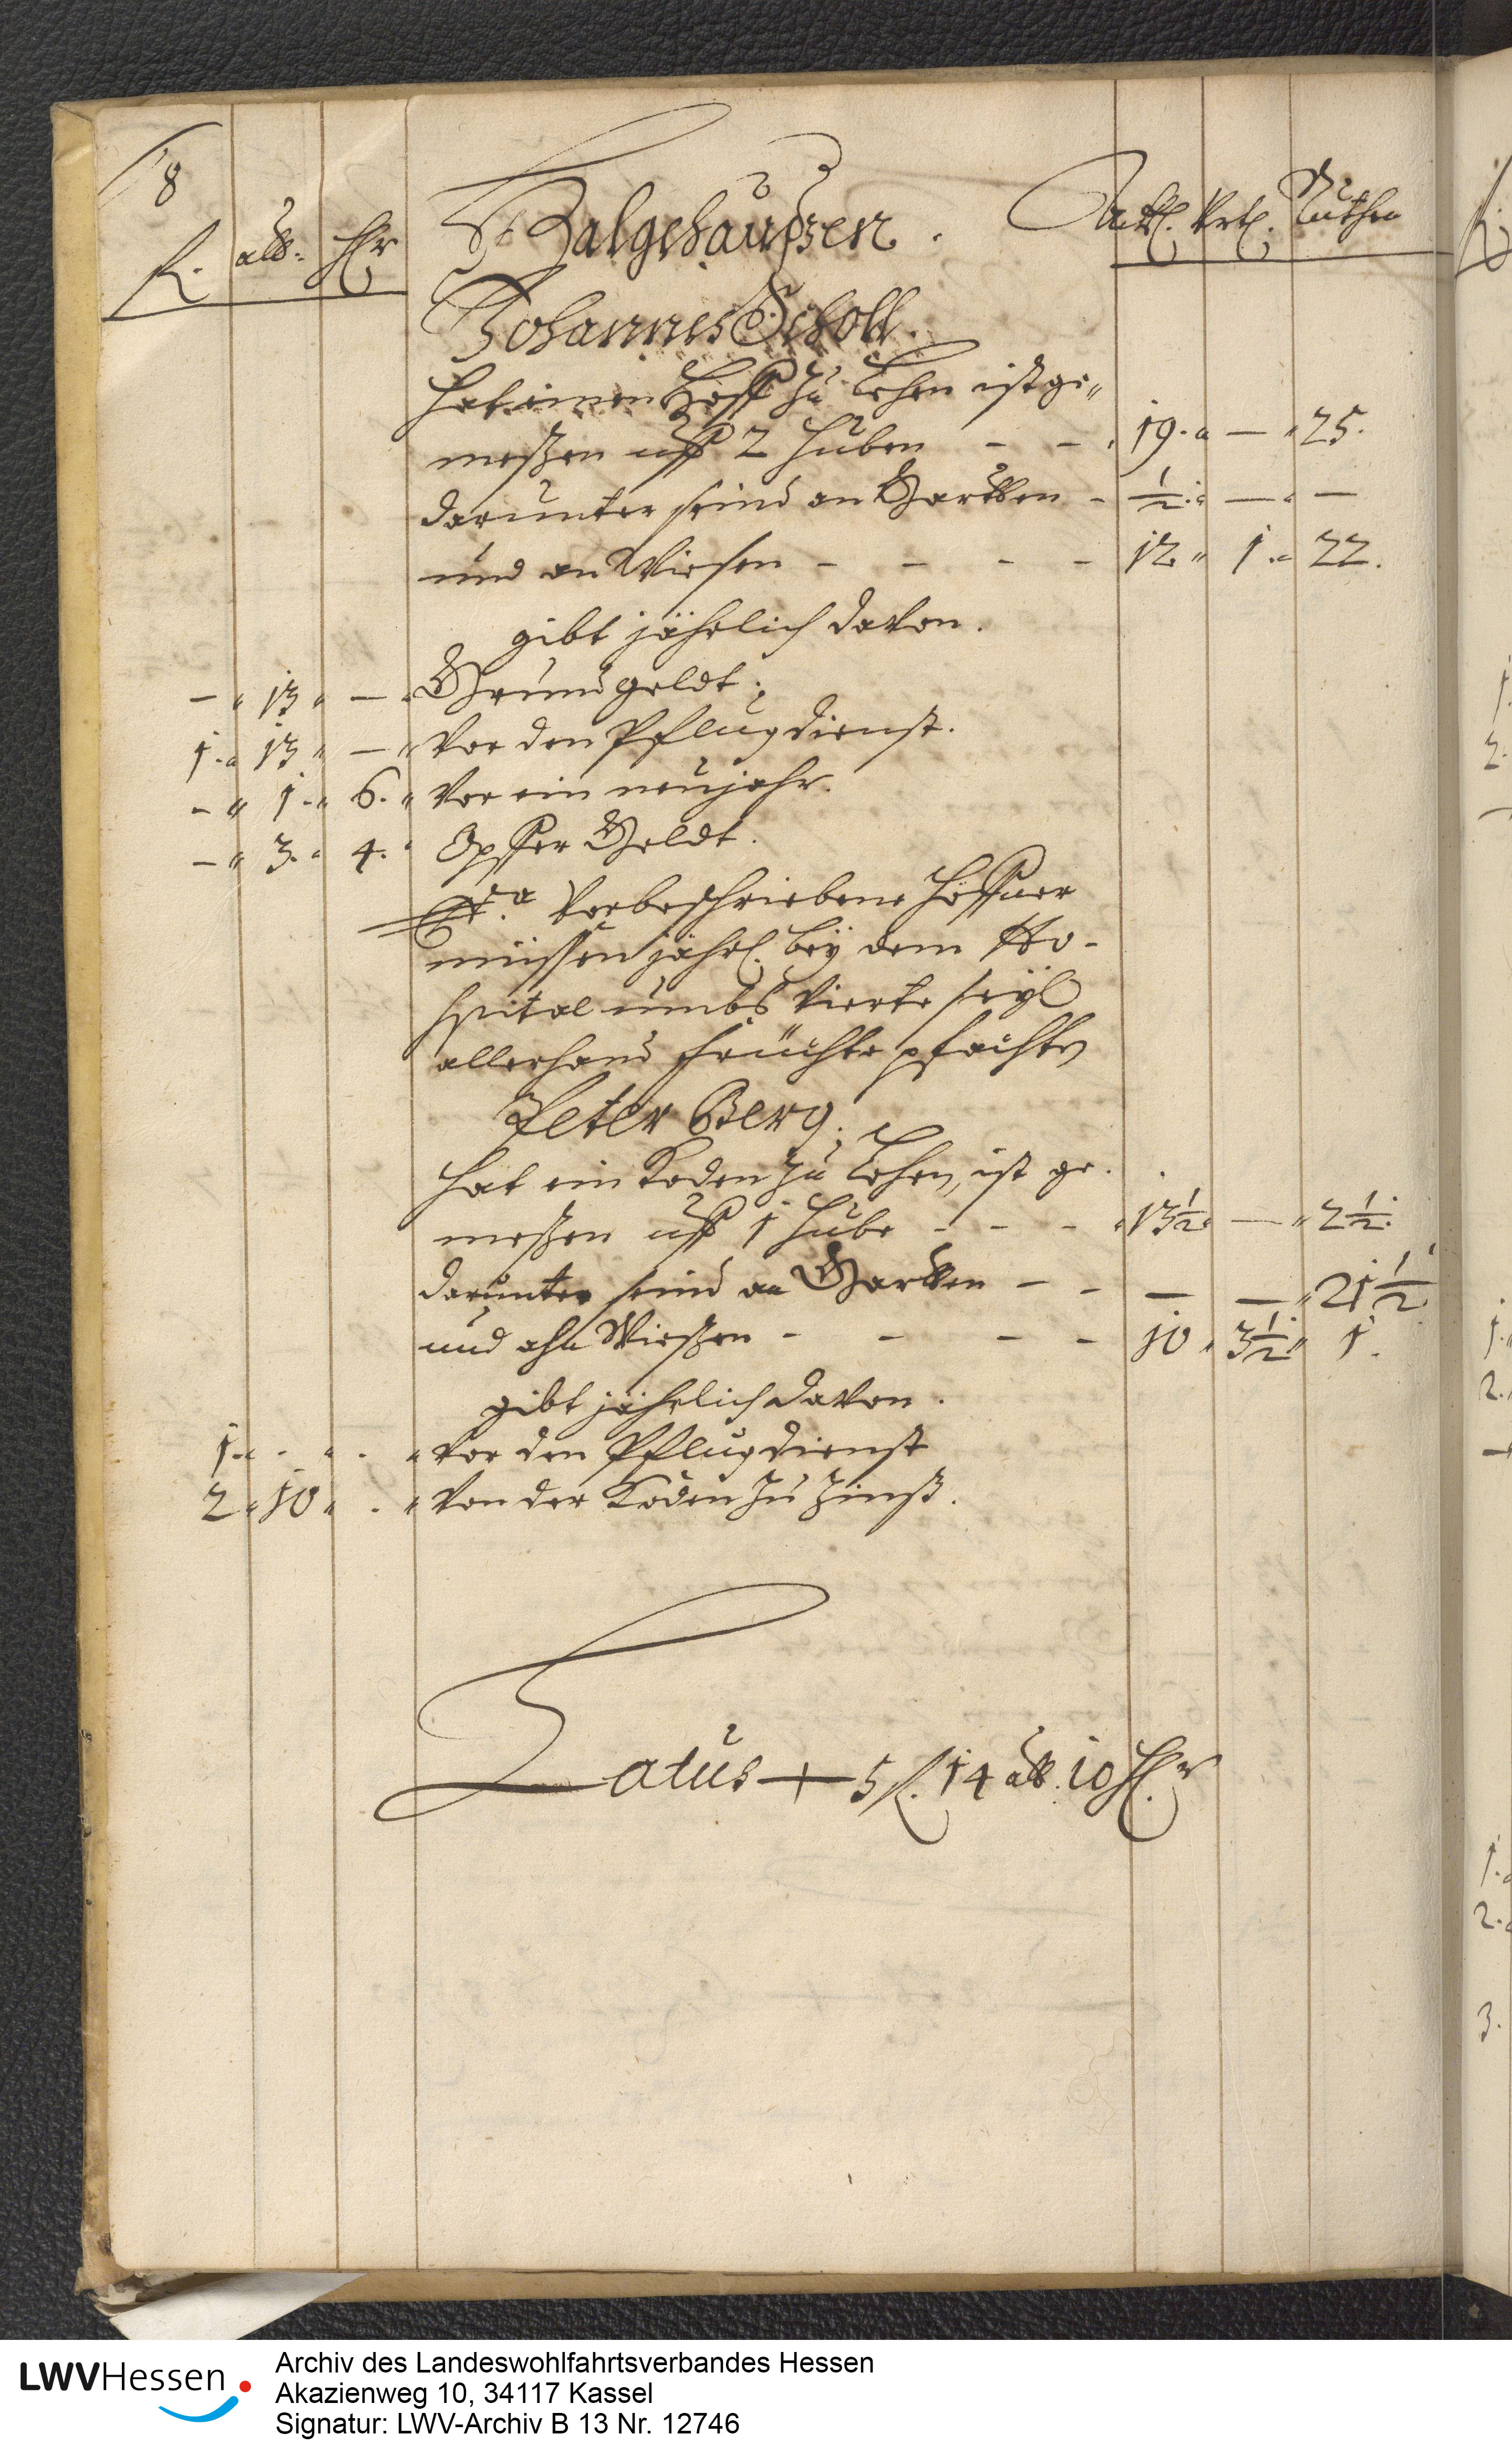 8
fl. alb. hlr Halgehaußen. Ack. Vrt. Ruthen
Johannes Scholl.
Hat einen Hoff zu Lehen ist ge„
meßen uff 2 Huben - - 19. „ — „ 25.
darunter seind an Gartten - ½ „ — „ —
und an Wiesen - - - - 12 „ 1 „ 22.
gibt jährlich davon.
— „ 13 „ — „ Grundgeldt.
1 „ 13 „ — „ Vor den Pflugdienst.
— „ 1 „ 6. „ Vor ein neujahr.
— „ 3. „ 4. „ Opffer Geldt.
Vorbeschriebene Höffner
müssen jährl. bey dem Ho-
spital umbs Vierte
allerhand früchte
Peter Berg.
hat ein Koden zu Lehen, ist ge-
meßen uff 1 Hube - - - 13½ „ — „ 2½.
darunter seind an Gartten - - — — „ 21½
und ahn Wießen - - - - 10 „ 3½ „ 1.
gibt jährlich davon.
1 „ - „ - „ Vor den Pflugdienst
2 „ 10 „ - „ Von der Koden zu Zinß.
Latus + 5 fl. 14 alb. 10 hlr
LWVHessen
Archiv des Landeswohlfahrtsverbandes Hessen
Akazienweg 10, 34117 Kassel
Signatur: LWV-Archiv B 13 Nr. 12746